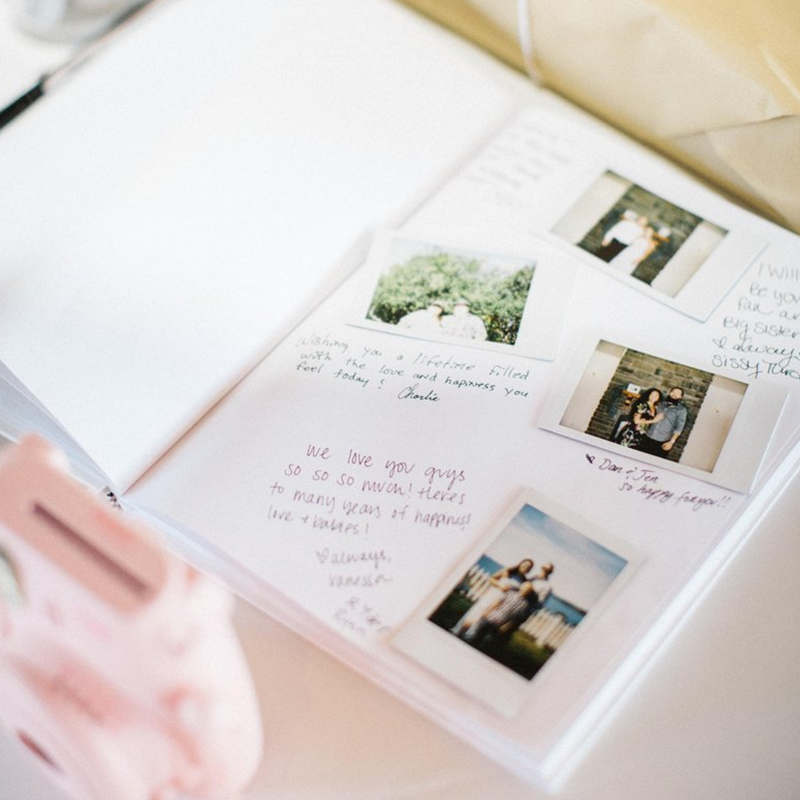 Wishing you a lifetime filled
with the love and happiness you
feel today!
Charlie
I Will
Be you
fan an
Big sister
♥ always
Sissy
♥ Dan & Jen
so happy for you!!
we love you guys
so so so much! Heres
to many years of happiness!
love + babies!
♡ always,
Vanessa